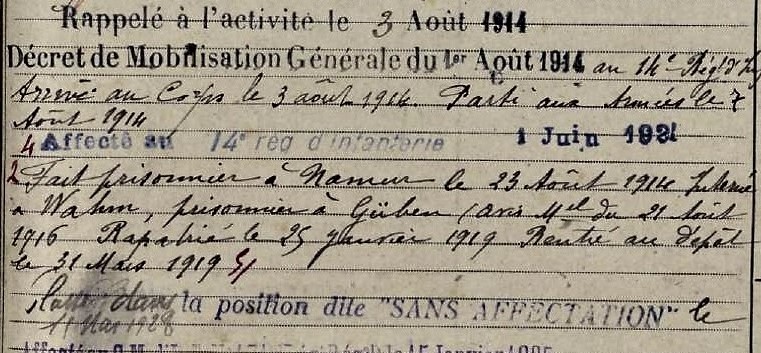 Rappelé à l'activité le 3 Août 1914
Décret de Mobilisation Générale du 1er Août 1914 au 14e Régt d'Inf
Arrivé au Corps le 3 août 1914. Parti aux Armées le 7
Aout 1914
4 Affecté au 14e reg d'infanterie 1 Juin 1921
2 Fait prisonnier à Namur le 23 Août 1914 Interné
à Wahm, prisonnier à Güben (avis Mel du 21 Août
1916 Rapatrié le 25 Janvier 1919 Rentré au dépôt
le 31 Mars 1919
dans la position dite "SANS AFFECTATION" le
11 Mai 1928
15 Janvier